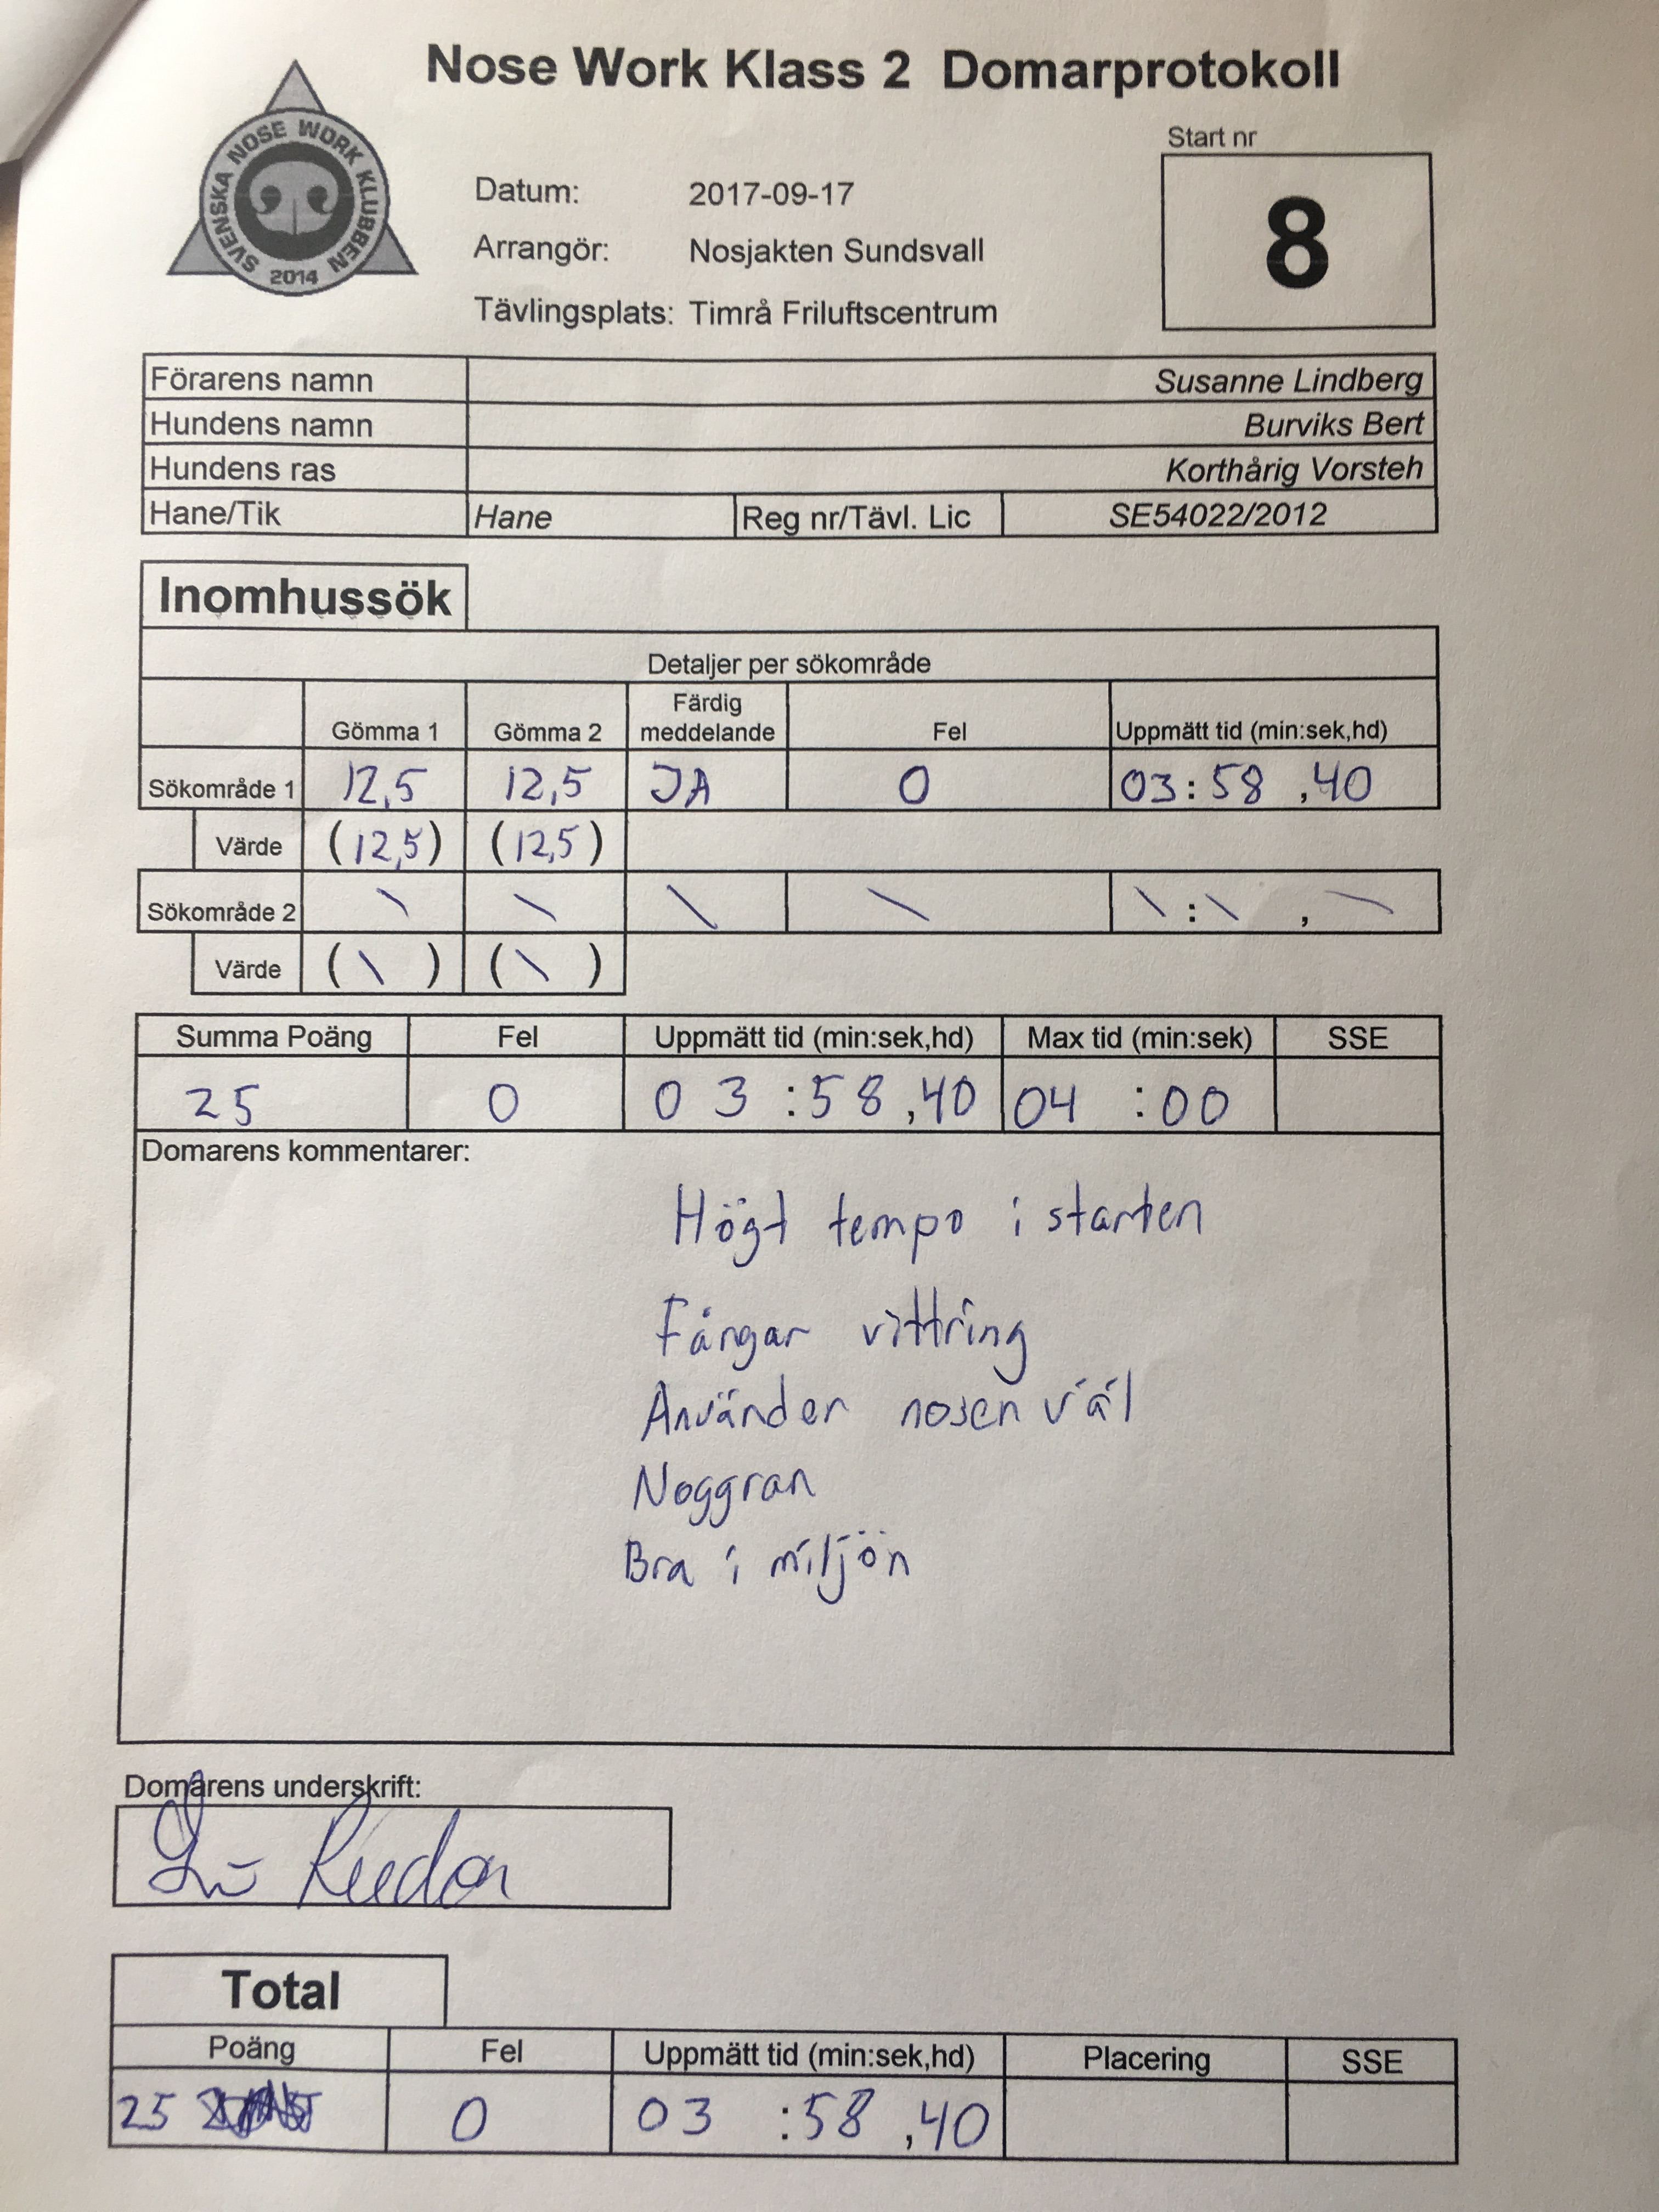 Nose Work Klass 2 Domarprotokoll
SVENSKA NOSE WORK KLUBBEN
2014
Start nr
8
Datum: 2017-09-17
Arrangör: Nosjakten Sundsvall
Tävlingsplats: Timrå Friluftscentrum
Förarens namn Susanne Lindberg
Hundens namn Burviks Bert
Hundens ras Korthårig Vorsteh
Hane/Tik Hane Reg nr/Tävl. Lic SE54022/2012
Inomhussök
Detaljer per sökområde
Gömma 1 Gömma 2 Färdig meddelande Fel Uppmätt tid (min:sek,hd)
Sökområde 1 12,5 12,5 JA 0 03:58,40
Värde (12,5) (12,5)
Sökområde 2 \ \ \ \ \:\ , \
Värde (\) (\)
Summa Poäng Fel Uppmätt tid (min:sek,hd) Max tid (min:sek) SSE
25 0 03:58,40 04:00
Domarens kommentarer:
Högt tempo i starten
Fångar vittring
Använder nosen väl
Noggran
Bra i miljön
Domarens underskrift:
Total
Poäng Fel Uppmätt tid (min:sek,hd) Placering SSE
25 0 03:58,40